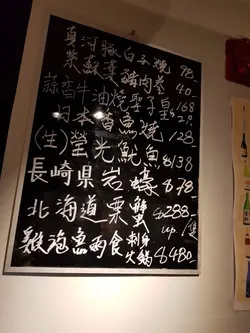 真河豚白子燒 98.
紫蘇葉豬肉卷 40.
蒜香牛油燒聖子皇 168
日本香魚燒 128.
(生)螢光魷魚 $138
長崎県岩蠔 $78.
北海道栗蟹 $288.
up./隻
雞泡魚両食 刺身
火鍋 $480.